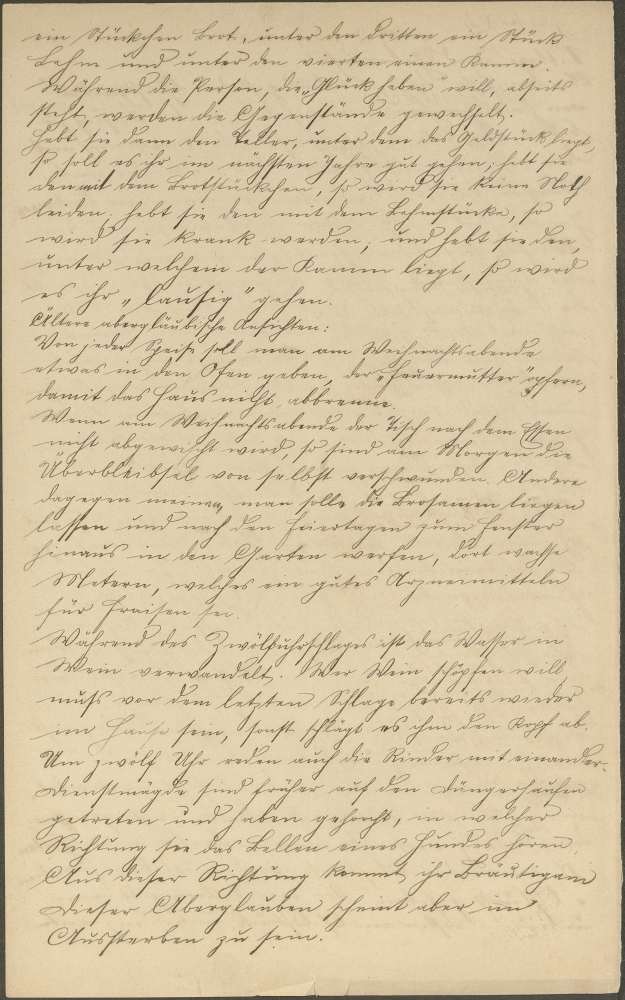 ein Stückchen Brot, unter den dritten ein Stück
Lehm und unter den vierten einen Kamm.
Während die Person, die „Glück haben" will, abseits
steht, werden die Gegenstände gewechselt.
Hebt sie dann den Teller, unter dem das Geldstück liegt,
so soll es ihr im nächsten Jahre gut gehen; hebt sie
den mit dem Brotstückchen, so wird sie keine Noth
leiden; hebt sie den mit dem Lehmstücke, so
wird sie krank werden; und hebt sie den,
unter welchem der Kamm liegt, so wird
es ihr „lausig" gehen.
Ältere abergläubische Ansichten:
Von jeder Speise soll man am Weihnachtsabende
etwas in den Ofen geben, der „Feuermutter" opfern,
damit das Haus nicht abbrenne.
Wenn am Weihnachtsabende der Tisch nach dem Essen
nicht abgewischt wird, so sind am Morgen die
Überbleibsel von selbst verschwunden. Andere
dagegen meinen, man solle die Brosamen liegen
lassen und nach den Feiertagen zum Fenster
hinaus in den Garten werfen, dort wachse
Metern, welches ein gutes Arzneimitteln
für Fraisen sei.
Während des Zwölfuhrschlages ist das Wasser in
Wein verwandelt. Wer Wein schöpfen will,
muß vor dem letzten Schlage bereits wieder
im Hause sein, sonst schlägt es ihm den Kopf ab.
Um zwölf Uhr reden auch die Rinder mit einander.
Dienstmägde sind früher auf den Düngerhaufen
getreten und haben gehorcht, in welcher
Richtung sie das Bellen eines Hundes hören.
Aus dieser Richtung kommt ihr Bräutigam
Dieser Aberglauben scheint aber im
Aussterben zu sein.